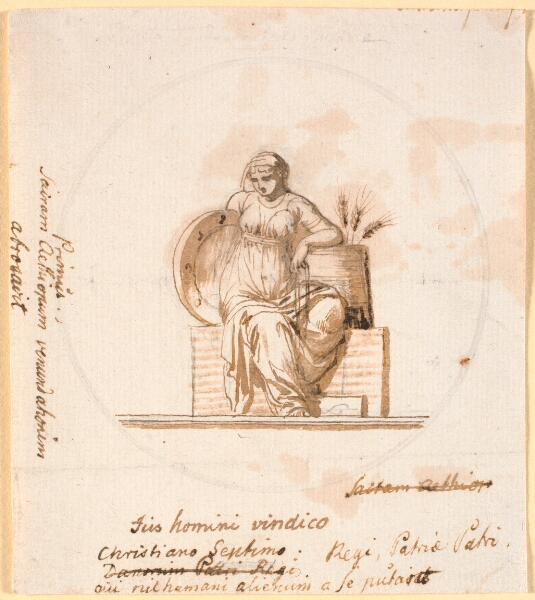 primus
sairam Aethiopum venundationem
abrogavit
sairam aethiop
Jus homini vindico
Christiano Septimo. Regi, Patriæ Patri.
Danorum Patri Regi
qui nil humani alienum a se putavit